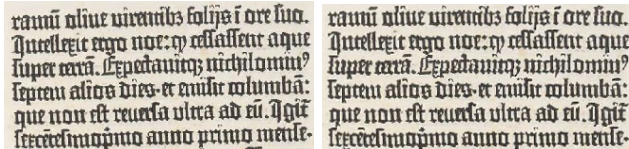 ramū oliue uirentibꝫ folijs ī ore suo.
Intellexit ergo noe: ꝙ cessassent aque
super terrā. Expectauitqꝫ nichilominꝰ
septem alios dies· et emisit columbā:
que non est reuersa vltra ad eū. Igit̄
sexcētesimop̄mo anno primo mense·
ramū oliue uirentibꝫ folijs ī ore suo.
Intellexit ergo noe: ꝙ cessassent aque
super terrā. Expectauitqꝫ nichilominꝰ
septem alios dies· et emisit columbā:
que non est reuersa vltra ad eū. Igit̄
sexcētesimop̄mo anno primo mense·